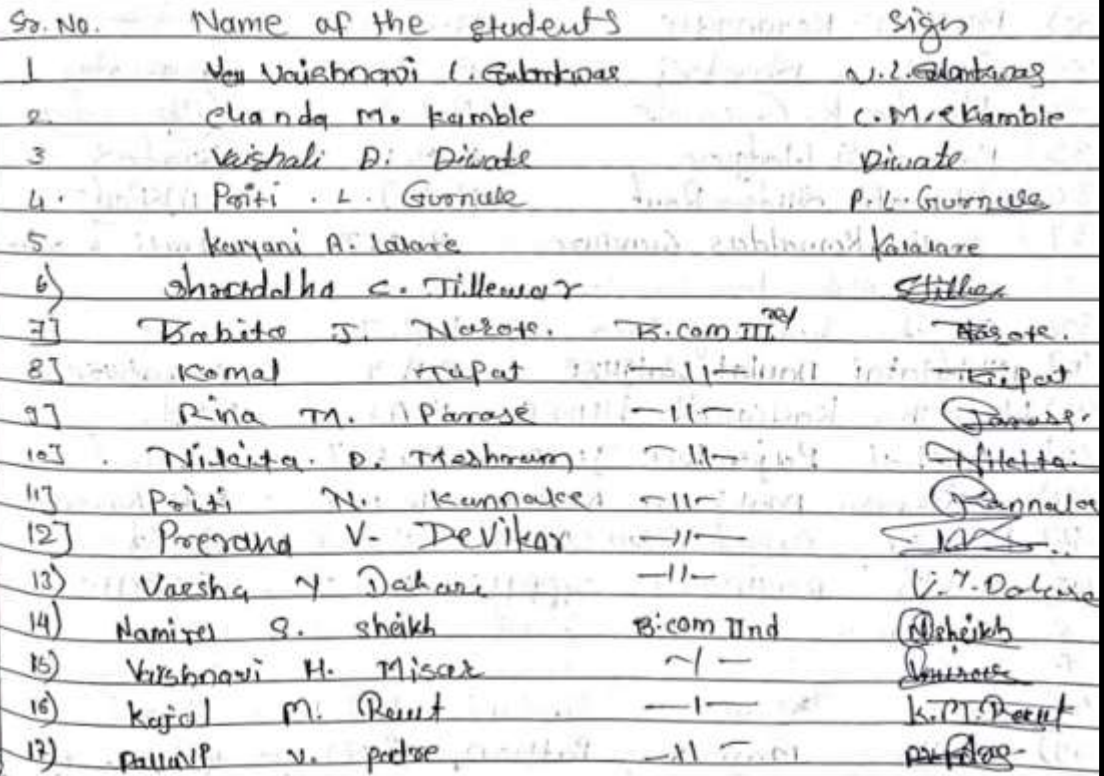 Sr. No. Name of the students Sign
1 Vaishnavi L. Galankwar V.L.Galankwar
2. Chanda M. Kamble C.M.Kamble
3 Vaishali D. Diwate Diwate
4. Priti . L. Gurnule P.L.Gurnule
5 A.
6) Shraddha C. Tillewar
7] Babita J. Narote. B.com III Narote.
8] Komal —11—
9] Rina M. Parase —11— Parase.
10] Nikita. D. Meshram —11— Nikita.
11] Priti N. Kannake —11— Kannake
12] Prerana V. Devikar —11—
13) Varsha Y —11— V.Y.
14) S. Sheikh B.com IInd NSheikh
15) Vaishnavi H. Misar —1—
16) Kajal M. Raut —1— K.M.Raut
17) V. —11—